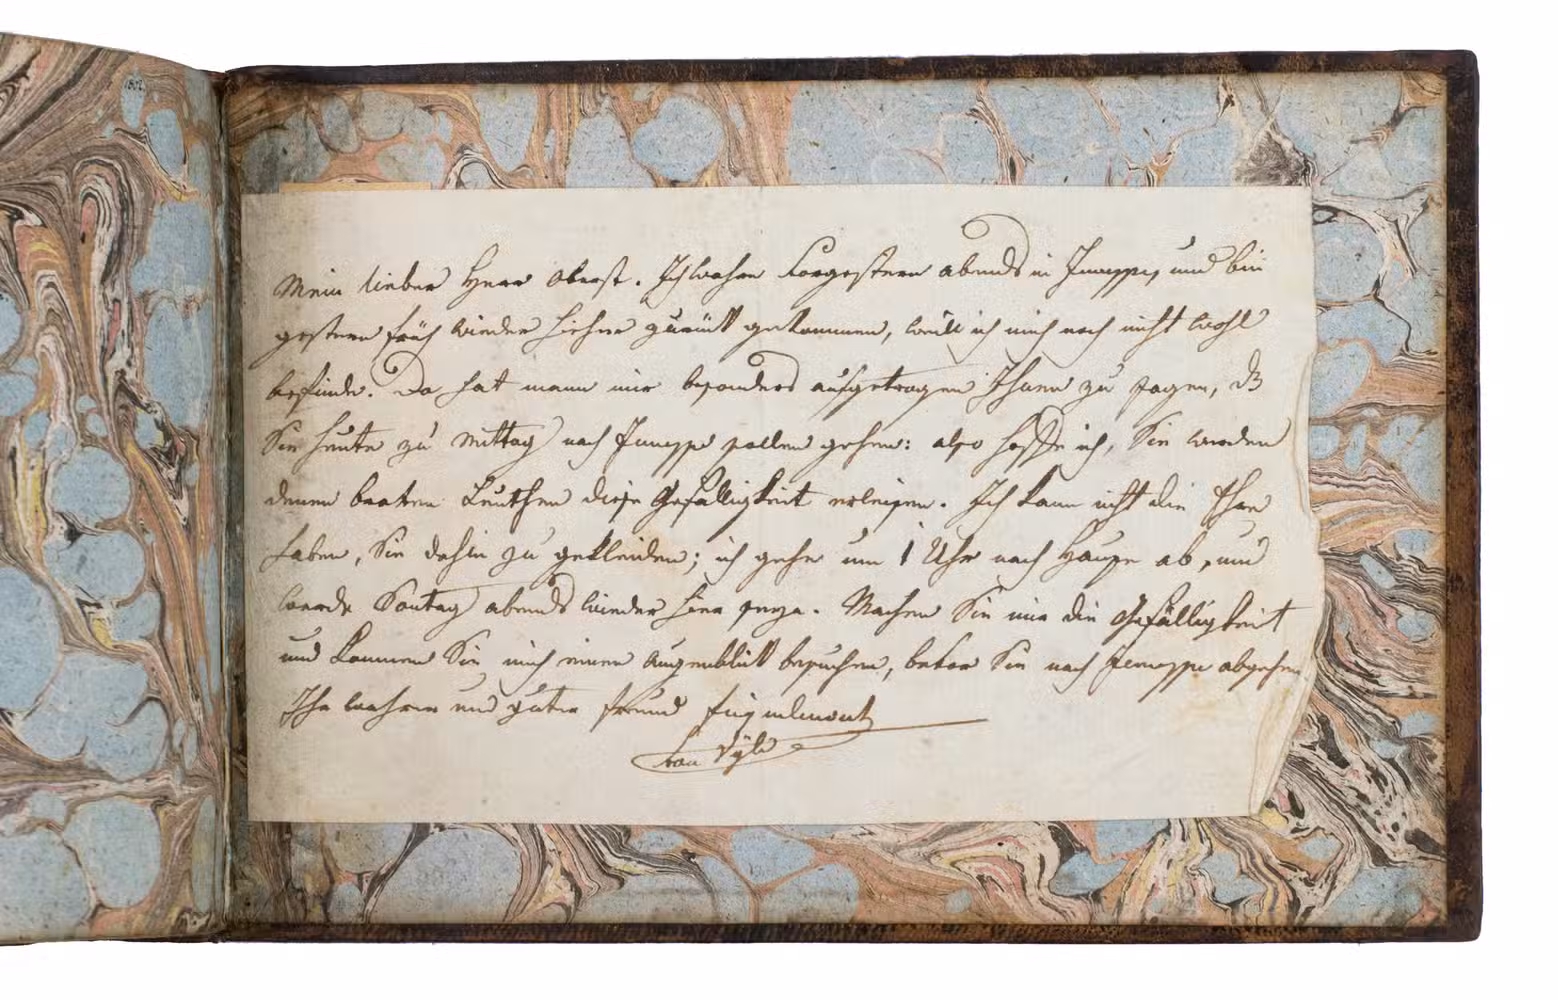 1802.
Mein lieber Herr Oberst. Ich wahre Vorgestern abends in Jemeppe, und bin
gestern früh wieder hieher zurück gekommen, weill ich mich noch nicht wohl
befinde. Da hat mann mir besonders aufgetragen Ihnen zu sagen, dß
Sie heute zu Mittag nach Jemeppe sollen gehen: also hoffe ich, Sie werden
denen braven Leuthen diese Gefälligkeit erleisen. Ich kann nicht die Ehre
haben, Sie dahin zu gekleiden; ich gehe um 1 Uhr nach ab, und
werde Sontag abends wieder hier seyn. Machen Sie mir die Gefälligkeit
und kommen Sie mich einen Augenblick besuchen, bevor Sie nach Jemeppe abgehen
Ihr wahrer und guter Freund
van